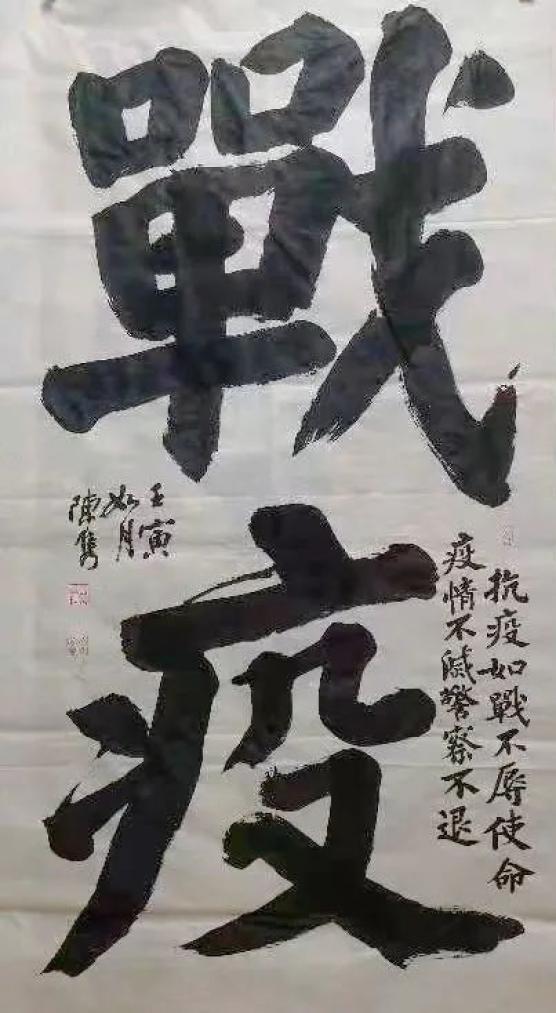 戰疫
抗疫如戰不辱使命
疫情不减警察不退
壬寅
如月
陳隽